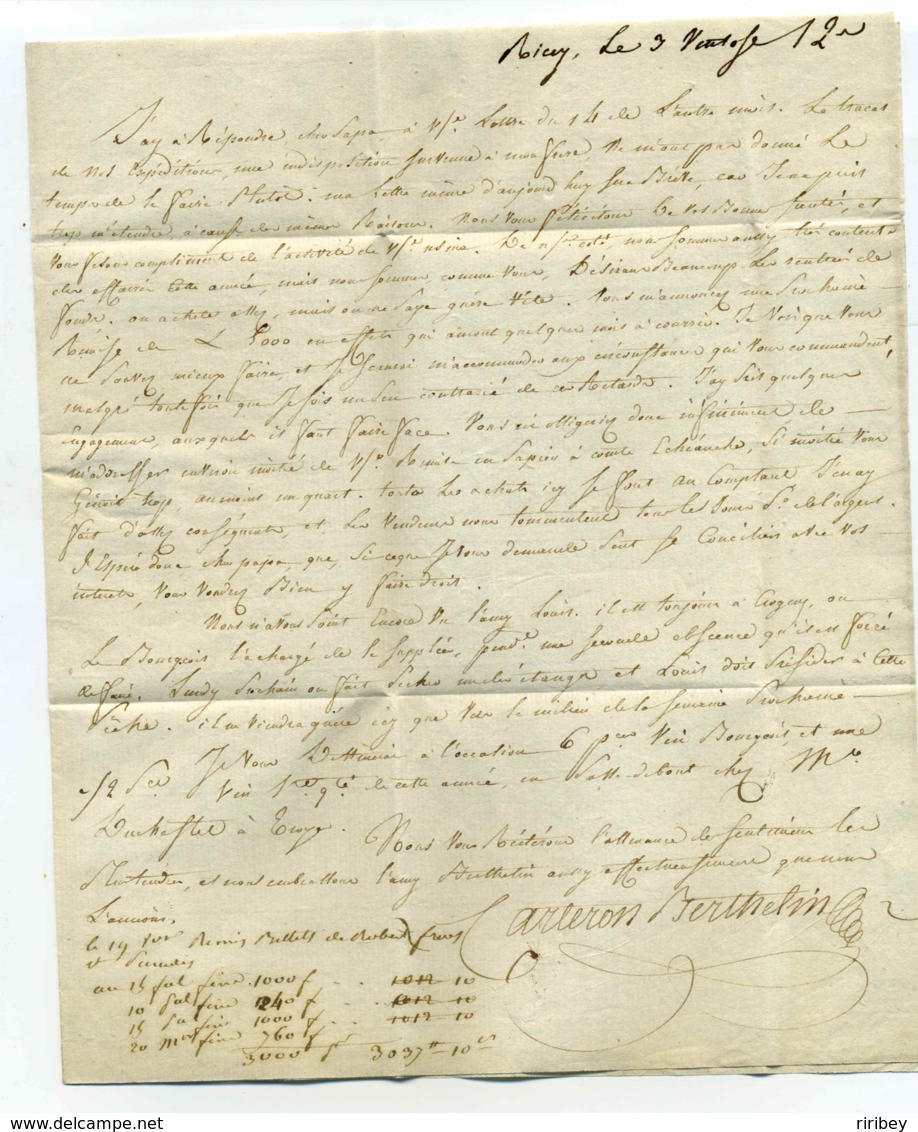 Ricey, Le 3 Ventose 12e
J'ay à Répondre, cher Papa à v/re Lettre du 14 de L'autre mois. Le tracas
de nos Expéditions, une indisposition survenue à mon frere, ne m'ont pas donné Le
temps de le faire Plutot. ma Lettre même d'aujourd'huy sera Brève, car Je ne puis
trop m'étendre, à cause des mêmes Raisons. Nous vous félicitons de vos Bonnes santés, et
vous faisons compliment de l'activité de v/re usine. De n/re coté, nous sommes aussy très contents
des affaires cette année, mais nous sommes, comme vous, Désirans Beaucoup Les rentrées de
fonds. on achete assez, mais on ne paye guère vite. Vous m'annoncez une Prochaine
Remise de L 5000 en effets qui auront quelques mois à courrir. Je vois que vous
ne pouvez mieux faire, et Je scaurai m'accommoder aux circonstances qui vous commandent,
malgré toutefois que Je sois un peu contrarié de ce Retard. J'ay pris quelques
Engagemens, auxquels il faut faire face. Vous m'obligeriez donc infiniment de
m'adresser environ moitié de v/re Remise en Papier à courte Echéance, si moitié vous
Génoit trop, au moins un quart. toutes Les achats icy se font au Comptant J'en ay
fait d'assez conséquents, et Les Vendeurs nous tourmentent tous les Jours Pr de l'argent.
J'Espère donc cher papa, que, si ce que Je vous demande peut se Concilier avec vos
interets, vous voudrez Bien y faire droit.
Nous n'avons Point Encore vu l'amy Louis. il est toujours à Crogny, ou
Le Bourgeois l'a chargé de le suppléer, pendt une seconde absence qu'il est forcé
de faire. Lundy Prochain on fait Pecher un des étangs et Louis doit Présider à cette
Pêche. il ne viendra guère icy que vers le milieu de la semaine Prochaine
Je vous Destinerai à l'occasion 6 pces Vin Bourgeois, et une
1/2 Pce Vin 1re qté de cette année, en Passe-debout chez Mr
Duchastel à Troye.
Nous vous Réitérons l'assurance des sentimens les
Plus tendres, et nous embrassons l'amy Berthelin aussy affectueusement que nous
L'aimons.
Carteron Berthelin
le 19 Remis Billets de Robert freres
au 15 1000 f 1012 10
10 240 f 1012 10
15 1000 f 1012 10
20 760 f
3000 3037 10
ribey